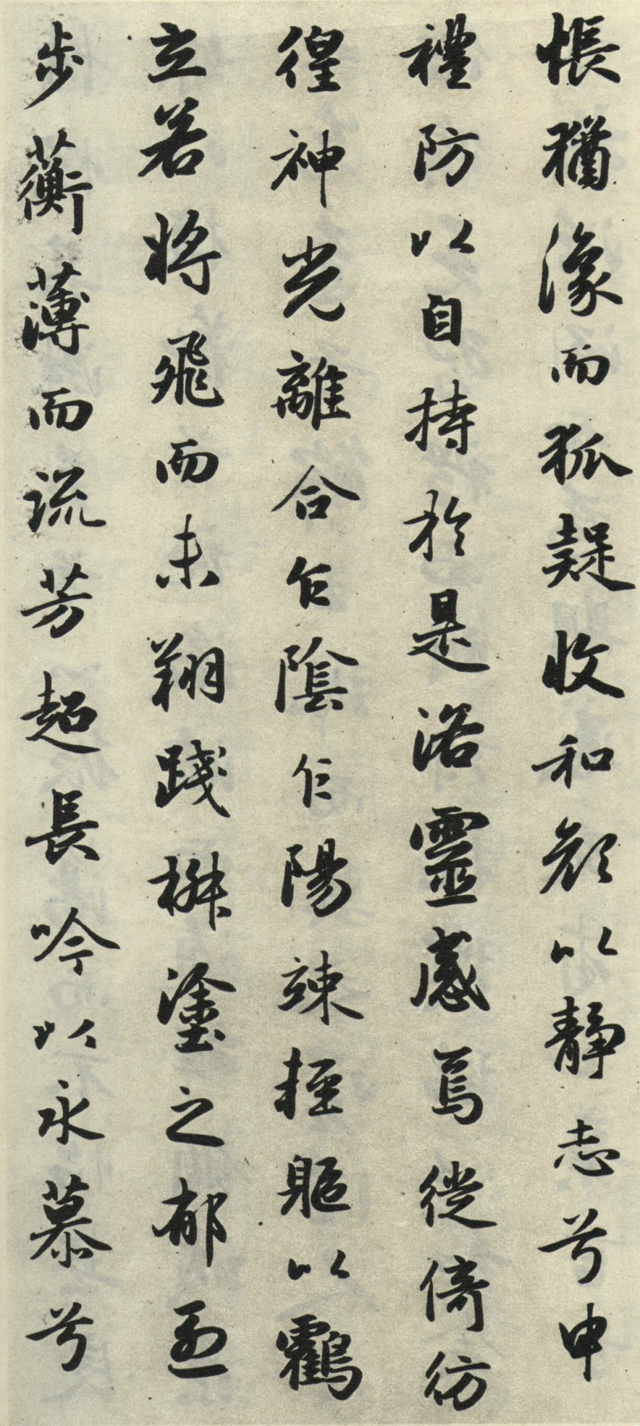 悵猶潒而狐疑收和顏以靜志兮申
禮防以自持於是洛靈感焉徙倚彷
徨神光離合乍陰乍陽竦輕軀以鶴
立若將飛而未翔踐椒塗之郁烈
步蘅薄而流芳超長吟以永慕兮